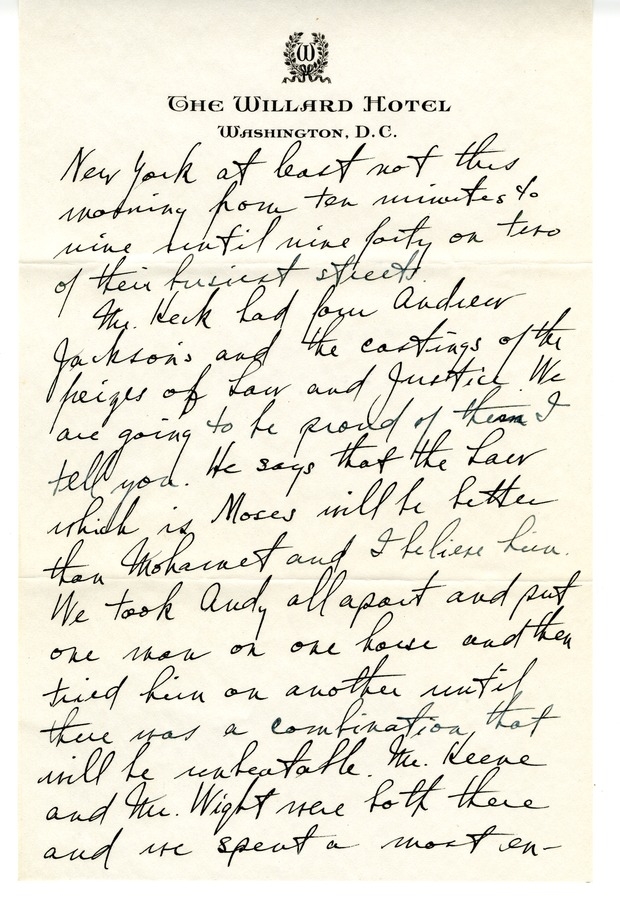 W
THE WILLARD HOTEL
WASHINGTON, D.C.
New York at least not this
morning from ten minutes to
nine until nine forty on two
of their busiest streets.
Mr. Keck had four Andrew
Jackson's and the castings of the
freizes of Law and Justice. We
are going to be proud of them I
tell you. He says that the Law
which is Moses will be better
than Mohamet and I believe him.
We took Andy all apart and put
one man on one horse and then
tried him on another until
there was a combination that
will be unbeatable. Mr. Keene
and Mr. Wight were both there
and we spent a most en-